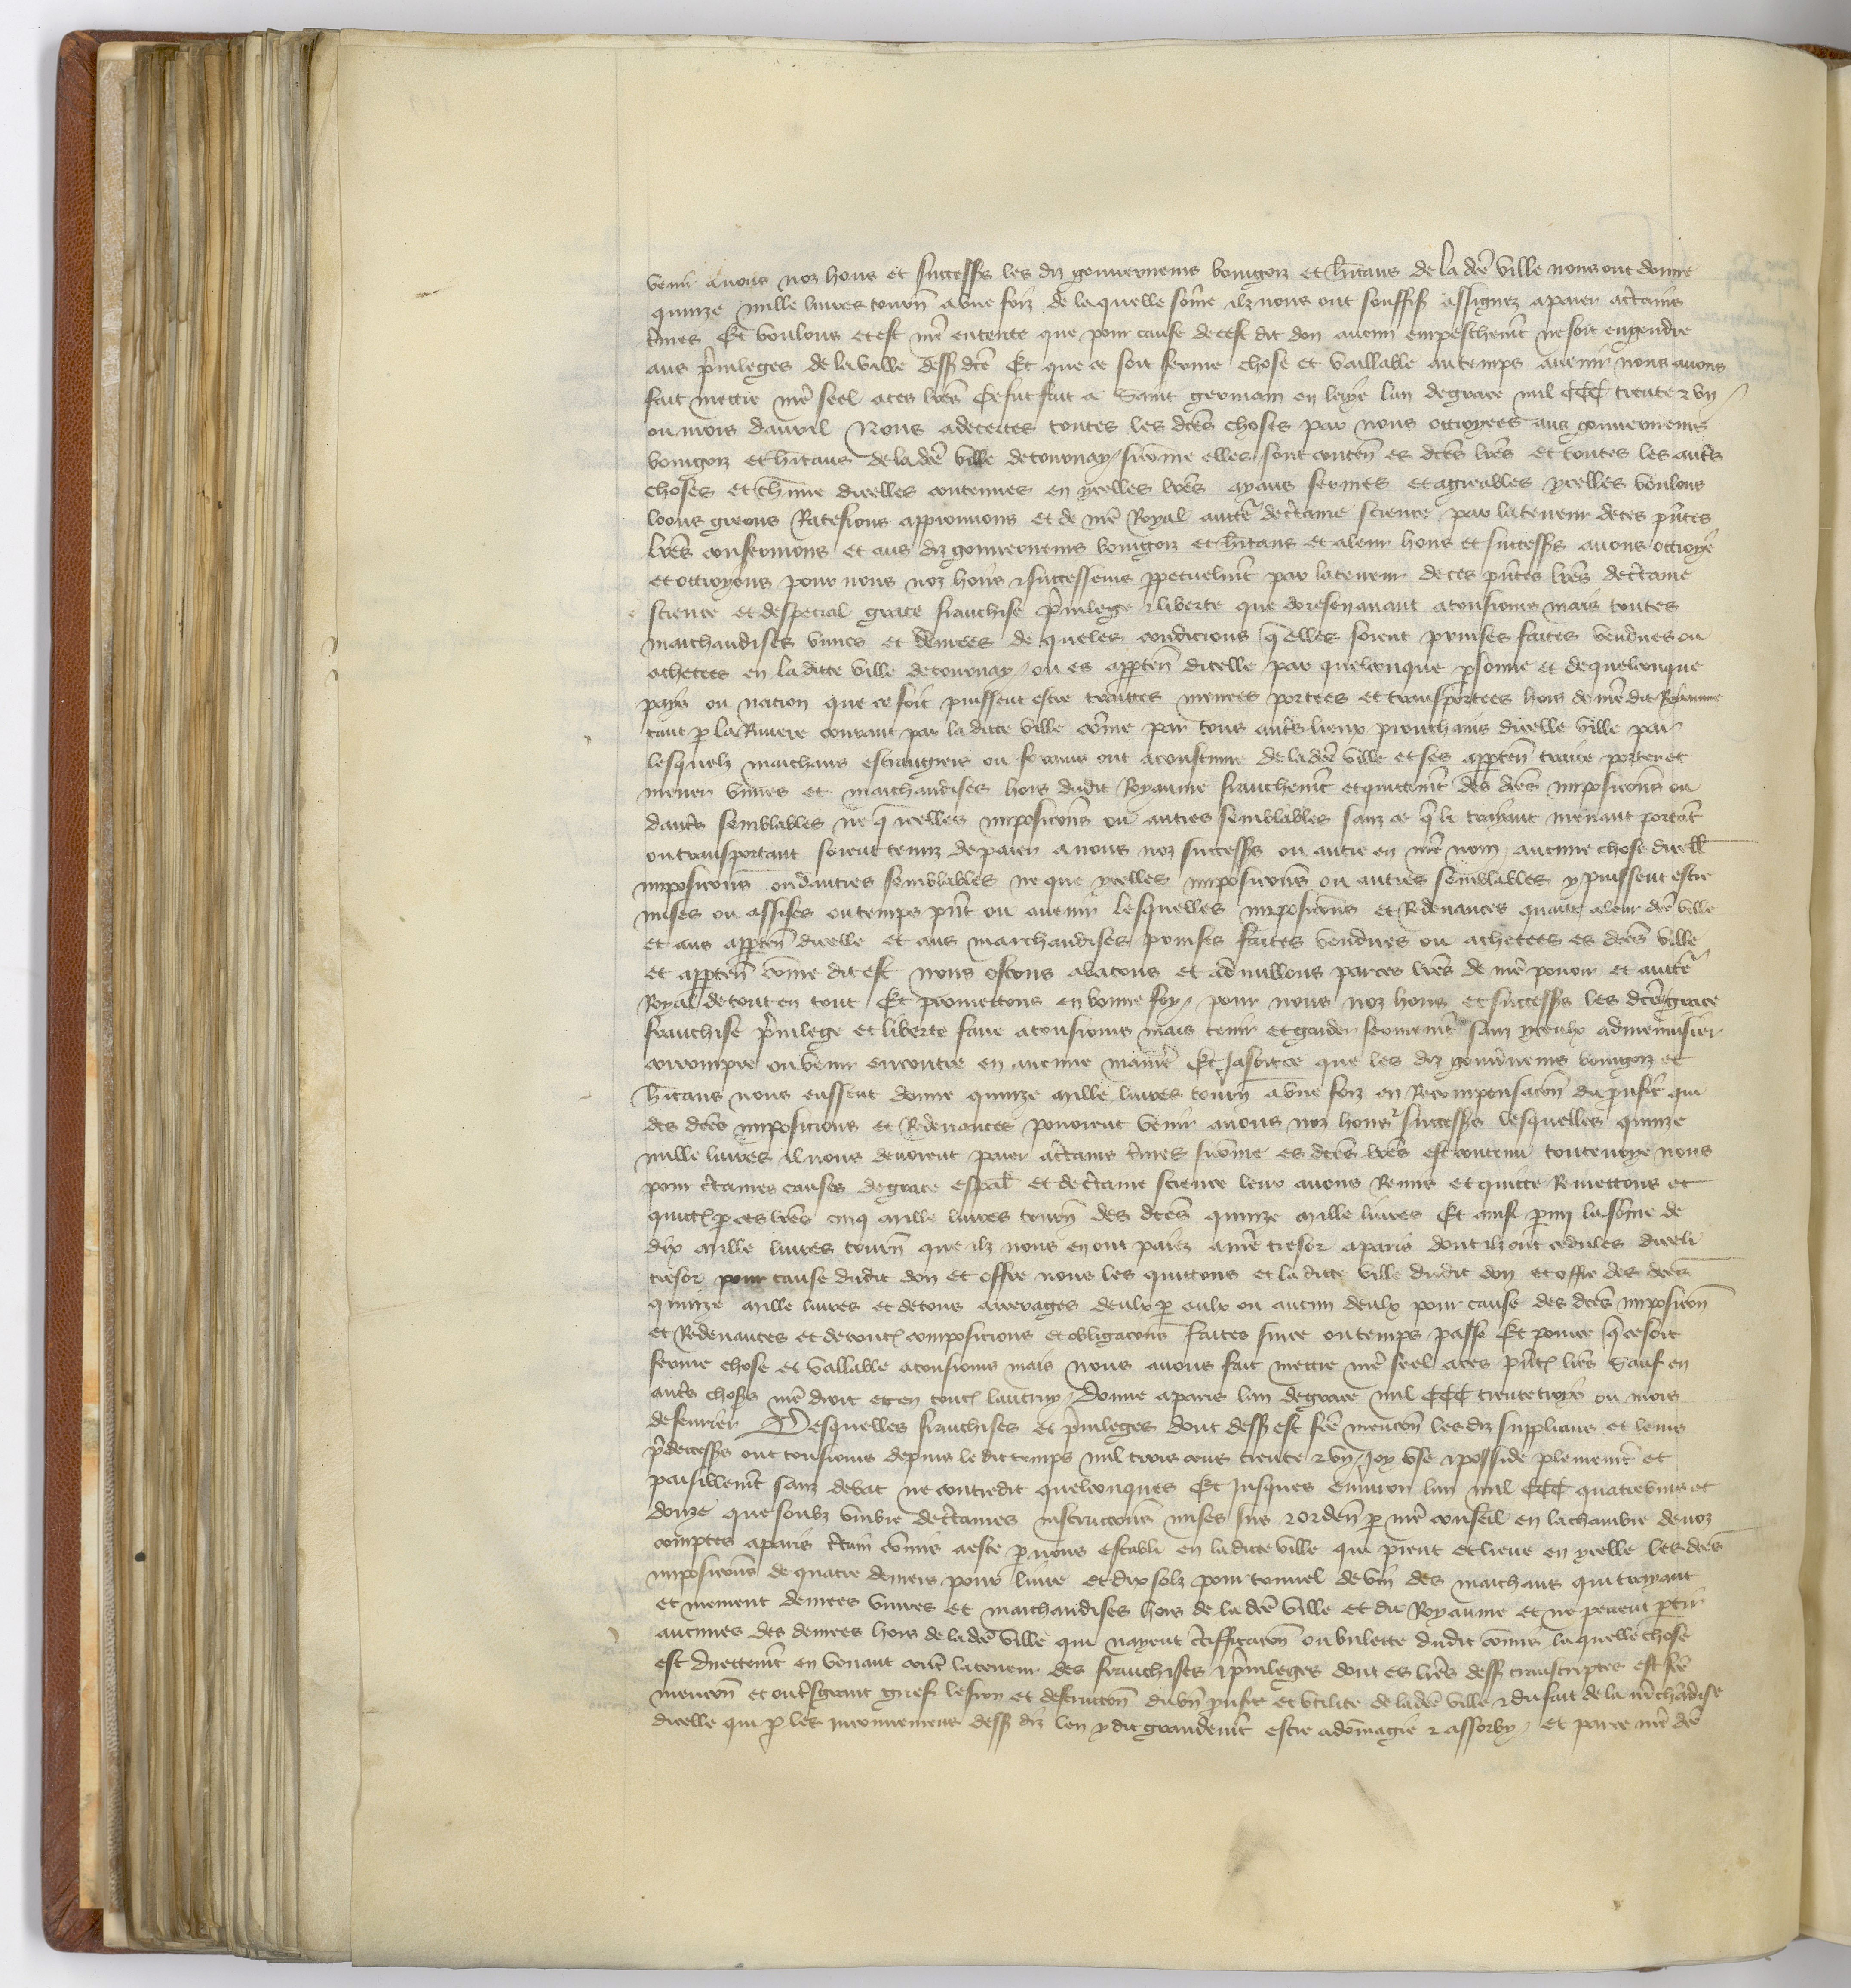 venir a nous noz hoirs et successrs les diz gouverneurs bourgois et hitans de la dce ville nous ont donne
quinze mille livres tourn a une foiz de laquelle some ilz nous ont souffis assignez a paier a ctains
tmes Et voulons et est nre entente que pour cause de cest dit don aucun empeschemt ne soit engendre
aus privileges de la ville dess dce Et que ce soit ferme chose et vaillable au temps avenir nous avons
fait mettre nre seel a ces lres Ce fut fait a Saint germain en laye lan de grace mil CCC trente & un
ou mois davril Nous adecertes toutes les dces choses par nous ottroyees aus gouverneurs
bourgois et hitans de la dce ville de tournay / si come elles sont conten es dces lres et toutes les autrs
choses et chune dicelles contenues en ycelles lres ayans fermes et agreables ycelles voulons
loons greons Ratefions approuvons et de nre Royal aucte de ctaine science par la teneur de ces pntes
lres confermons et aus diz gouverneurs bourgois et hitans et a leur hoirs et successrs avons ottroye
et ottroyons pour nous noz hoirs & successeurs ppetuelmt par la teneur de ces pntes lres de ctaine
science et despecial grace franchise privilege & liberte que doresenavant a tousiours mais toutes
marchandises vivres et denrees de queles condicions qelles soient prinses faites vendues ou
achetees en la ditte ville de tournay / ou es apptenn dicelle par quelconque psonne et de quelconque
pays ou nacion que ce soit puissent estre traittes menees portees et transportees hors de nre dit Royaume
tant p la Riviere courant par la ditte ville come par tous autrs lieux prouchains dicelle ville par
lesquelz marchans estrangiers ou forains ont acoustume de la dce ville et ses apptenn traire porter et
mener vivres et marchandises hors dudit Royaume franchemt et quittemt des dces imposicons ou
dautrs semblables ne q icelles imposicons ou autres semblables sanz ce q le trayant menant portat
ou transportant soient tenuz de paier a nous noz successrs ou autre en nre nom / aucune chose dicell
imposicons ou dautres semblables ne que ycelles imposicons ou autres semblables y puissent estre
mises ou assises ou temps pnt ou avenir lesquelles imposicons et Redevances quant a leur dce ville
et aus apptenn dicelle et aus marchandises prinses faites vendues ou achetees es dces ville
et apptenn come dit est nous ostons abatons et adnullons par ces lres de nre povoir et aucte
Royal de tout en tout Et promettons en bonne foy / pour nous noz hoirs et successrs les dces grace
franchise privilege et liberte faire a tousiours mais tenir et garder fermemt sanz yceulx admenuisier
corrompre ou venir encontre en aucune manie Et Jasoit ce que les diz gouvneurs bourgois et
hitans nous eussent donne quinze mille livres tourn a une foiz en Recompensacon du pufit qui
des dces imposicions et Redevances povoient venir a nous noz hoirs & successrs lesquelles quinze
mille livres il nous devoient paier a ctains tmes si come es dces lres est contenu toutevoye nous
pour ctaines causes de grace espal et de ctaine science leur avons Remis et quitte Remettons et
quitts p ces lres cinq mille livres tourn des dces quinze mille livres Et ainsi pmi la some de
dix mille livres tourn que ilz nous en ont paiez a nre tresor a paris dont ilz ont cedules dicelli
tresor pour cause dudit don et offre nous les quittons et la ditte ville dudit don et offre des dces
quinze mille livres et de tous arrerages deulx p eulx ou aucun deulx pour cause des dces imposicon
et Redevances et de touts composicions et obligacons faites sur ce ou temps passe Et pour ce q ce soit
ferme chose et vallable a tousiours mais nous avons fait mettre nre seel a ces pnts lres Sauf en
autrs choses nre droit et en touts lautruy / Donne a paris lan de grace mil CCC trente troys ou mois
de fevrier Desquelles franchises et privileges dont dess est fce mencon les diz supplians et leurs
pdecessrs ont tousiours depuis le dit temps mil trois cens trente & un / Joy use & posside plenemt et
paisiblemt sanz debat ne contredit quelconques Et Jusques environ lan mil CCC quatrevins et
douze que soubz umbre de ctaines instruccons mises sus & orden p nre conseil en la chambre de noz
comptes a paris ctain comis a este p nous establi en la dicte ville qui prent et lieve en ycelle les dces
imposicons de quatre deniers pour livre et dix solz pour tonnel de vin des marchans qui trayant
et mement denrees vivres et marchandises hors de la dce ville et du Royaume et ne pevent ptir
aucunes des denrees hors de la dce ville qui nayent ctifficacon ou bulette dudit comis laquelle chose
est directemt en venant contre la teneur des franchises & privileges dont es lres dess transcriptes est fce
mencon et ou tsgrant grief lesion et destruccon du bn pufit et utilite de la dce ville & du fait de la mrchadise
dicelle qui p les inconveniens dess diz len y dit grandemt estre adomagie & assorby / et par ce nre dce